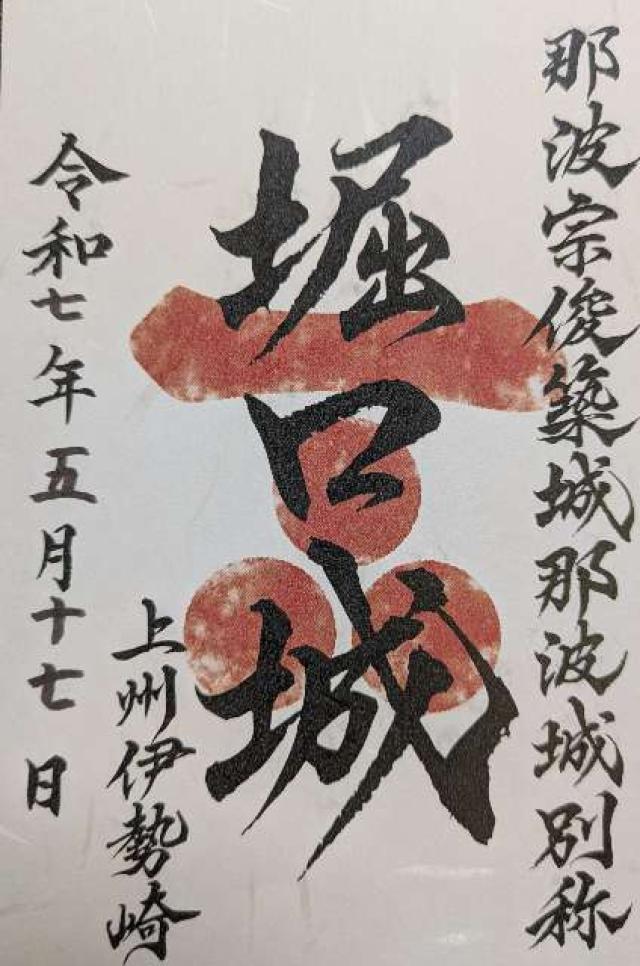 那波宗俊築城那波城別称
堀口城
上州伊勢崎
令和七年五月十七日